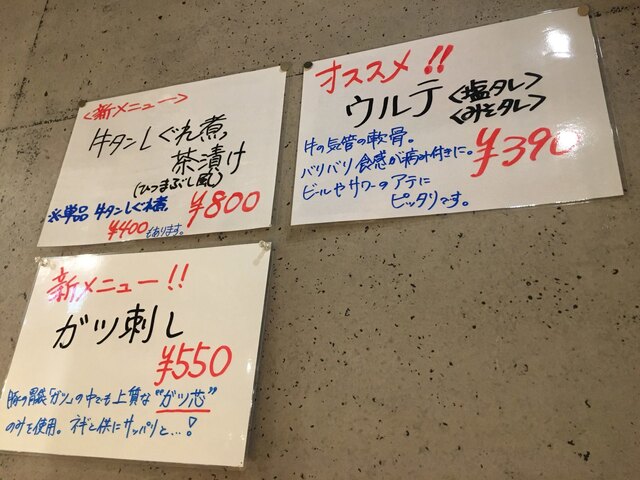 <新メニュー>
牛タンしぐれ煮
茶漬け
(ひつまぶし風)
¥800
※単品 牛タンしぐれ煮
¥400もあります。
オススメ!!
ウルテ <塩タレ>
<みそタレ>
牛の気管の軟骨。
バリバリ食感が病み付きに。
ビールやサワーのアテに
ピッタリです。
¥390
新メニュー!!
ガツ刺し
¥550
豚の胃袋「ガツ」の中でも上質な"ガツ芯"
のみを使用。ネギと供にサッパリと…!